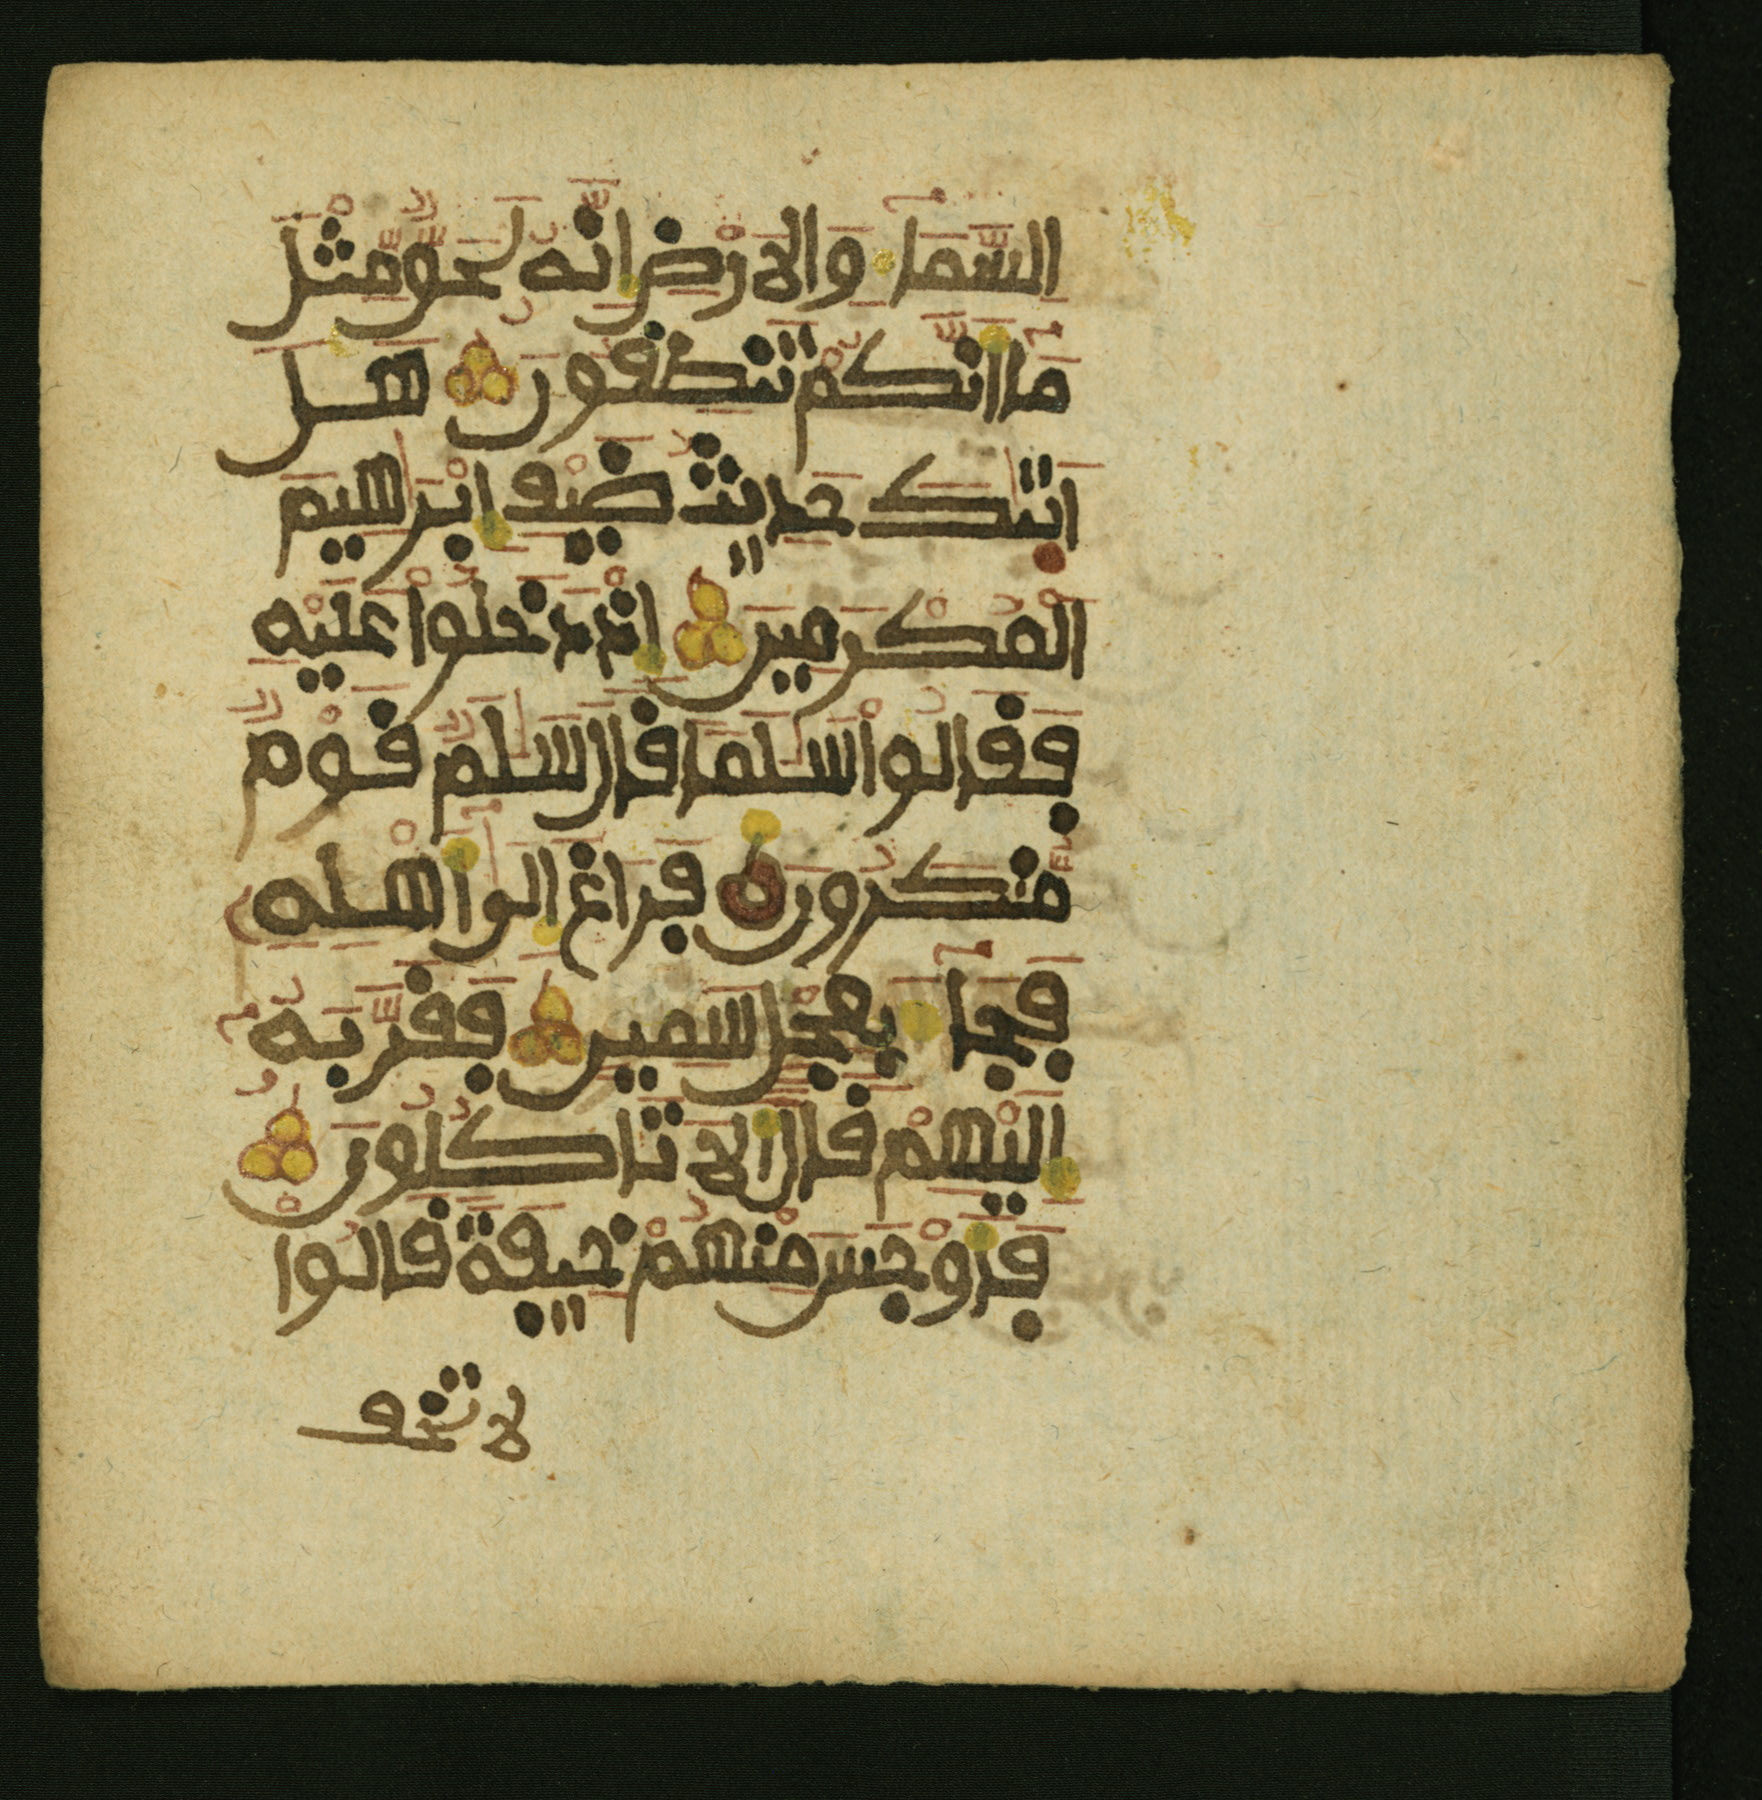 السَّمَاءِ وَالَارْضِ إِنَّهُ لَحَقٌّ مِّثْلَ
مَا أَنَّكُمْ تَنطِقُونَ هَلْ
اَتٜيٰكَ حَدِيثُ ضَيْفِ إِبْرَٰهِيمَ
الْمُكْرَمِينَ إِذْ دَخَلُوا عَلَيْهِ
فَقَالُوا سَلَٰمًا قَالَ سَلَٰمٌ قَوْمٌ
مُّنكَرُونَ فَرَاغَ إِلَىٰ أَهْلِهِ
فَجَاءَ بِعِجْلٍ سَمِينٍ فَقَرَّبَهُ
إِلَيْهِمْ قَالَ أَلَا تَاكُلُونَ
فَأَوْجَسَ مِنْهُمْ خِيفَةً قَالُوا
لا تخف